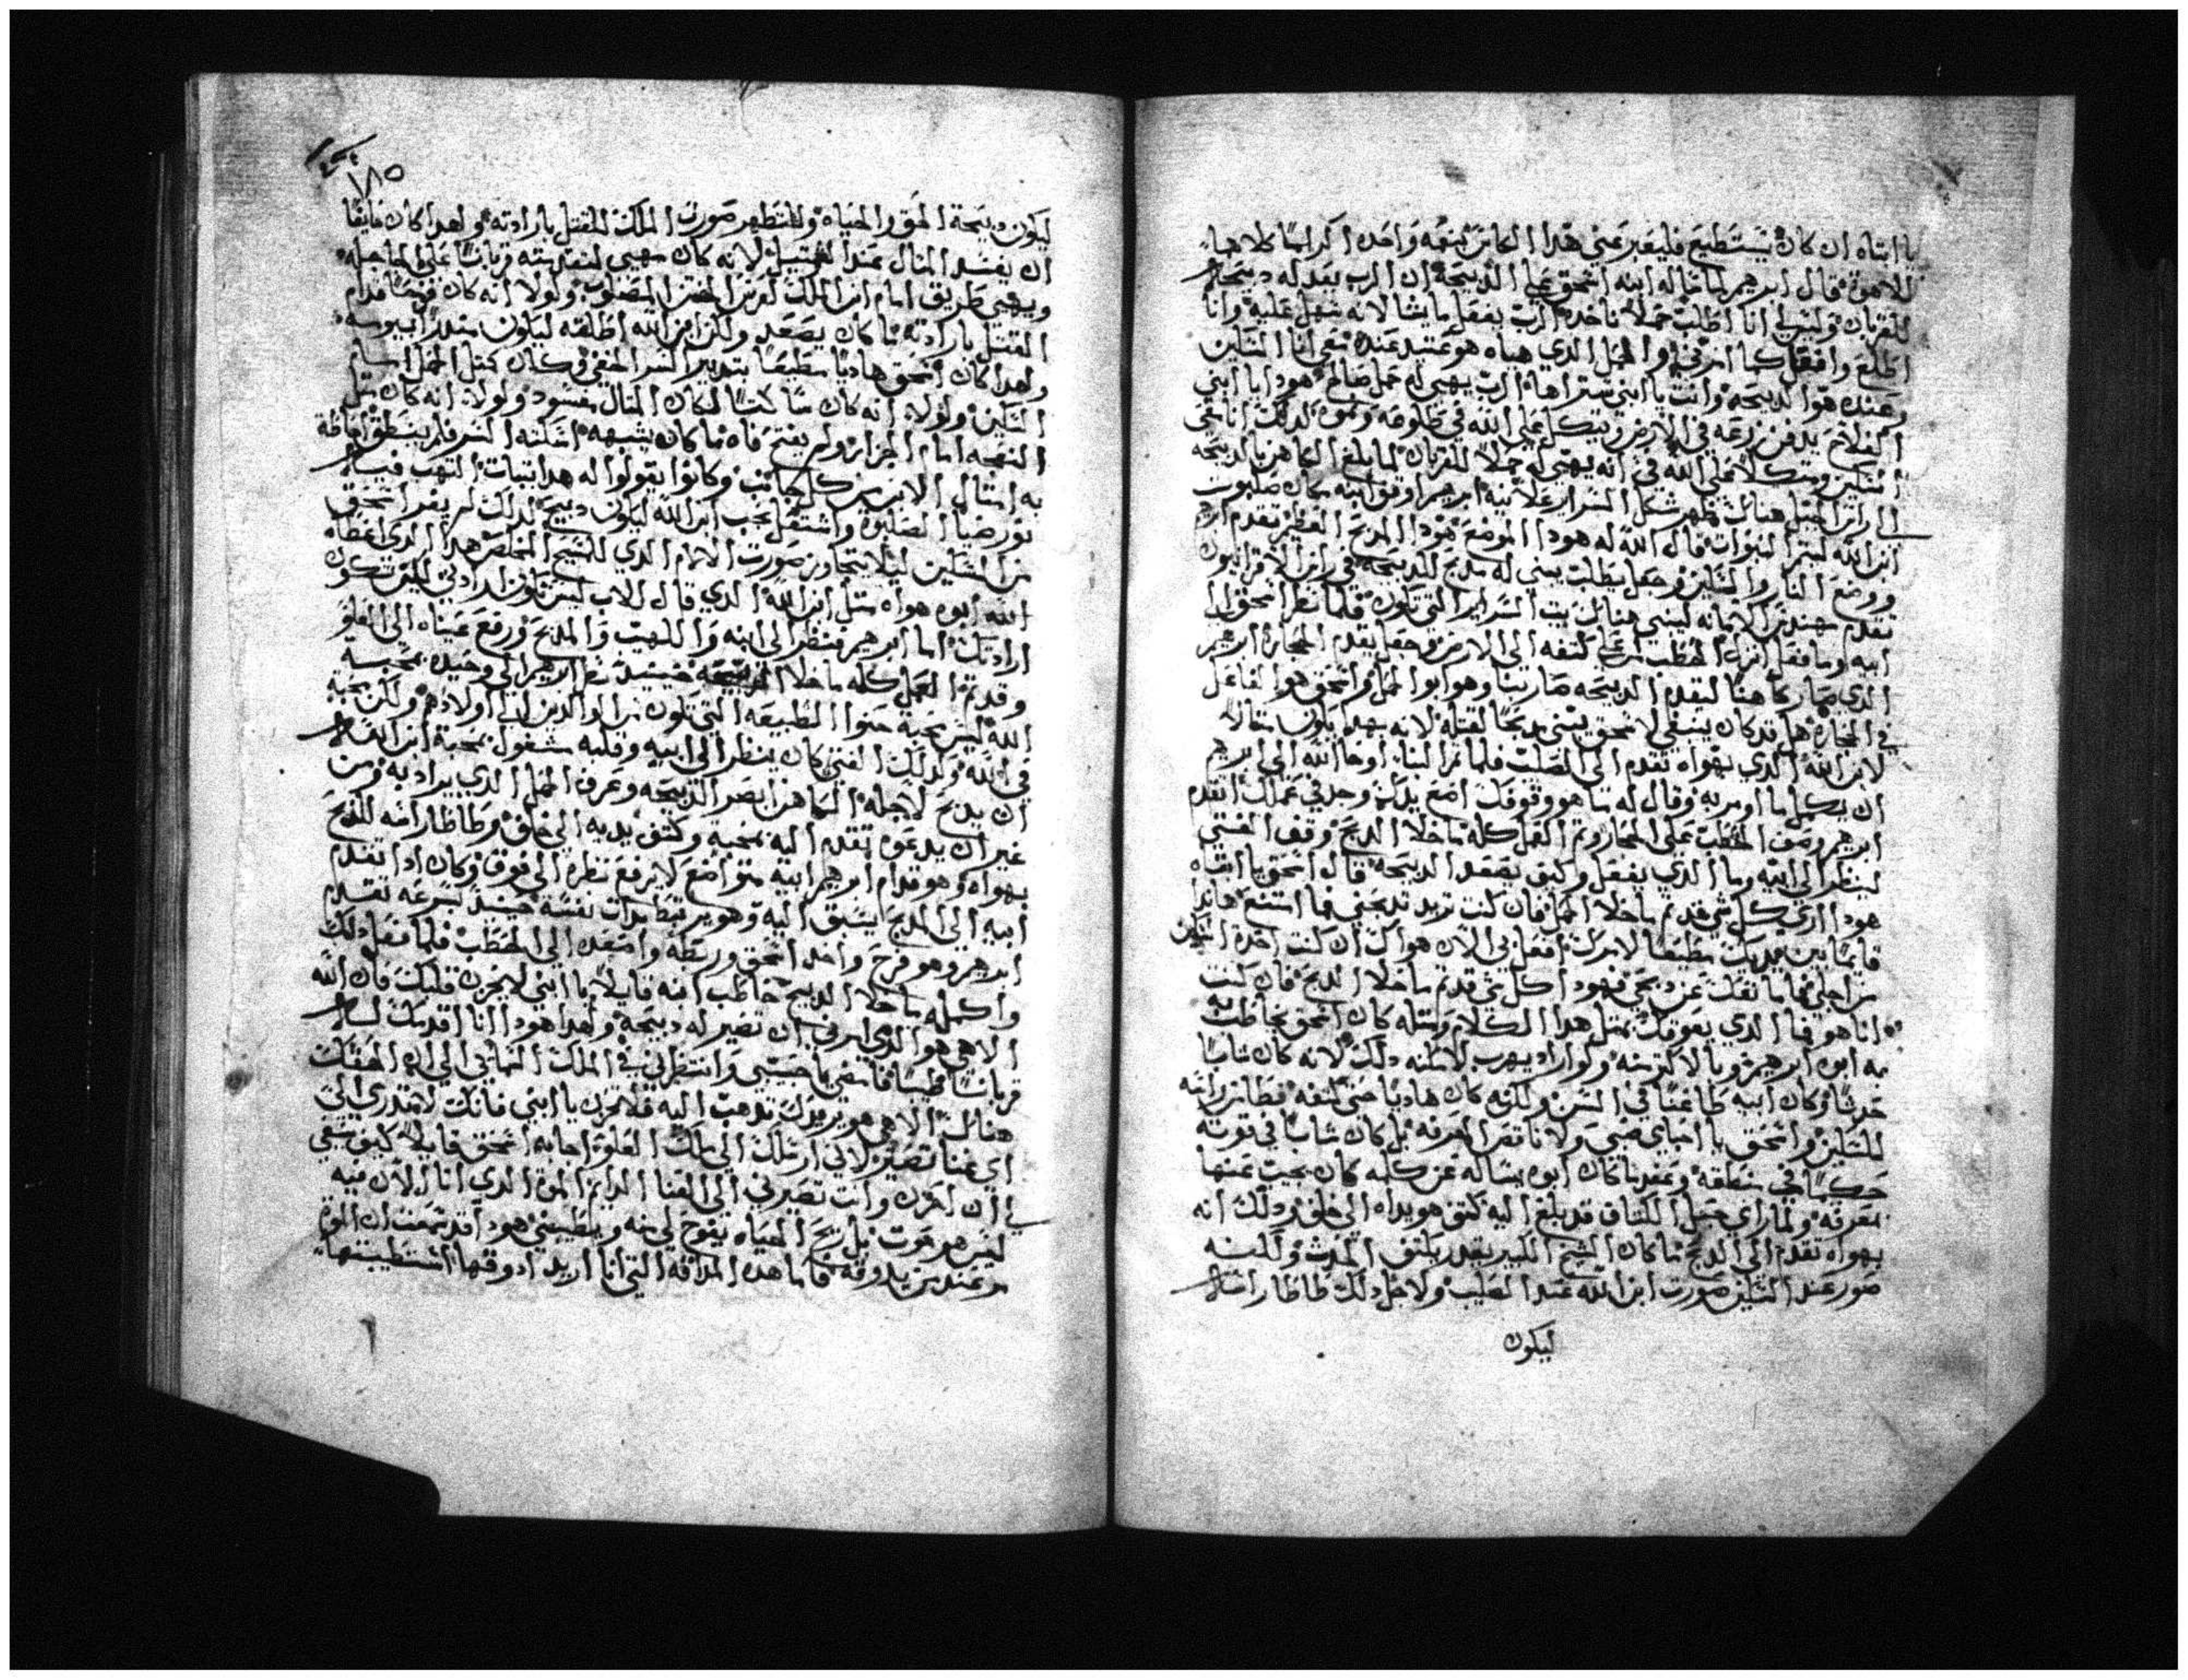 يا ابتاه ان كان يستطيع فليعبر عني هدا الكاس بنعمه واحده اكراما كلاهما
للاهوة قال ابرهيم لما قاله ابنه اسحق علي الدبيحة ان الرب يعد له دبيحة
للقربان وليس لي انا اطلب حملا ناخد الرب يفعل ما يشا لانه سهل عليه وانا
اطلع وافعل كما امرني والحمل الدي هياه هو عتيد عنده بقي انا السكين
وعنده هو الدبيحه وانت يا ابني ستراها الرب يهيي له حمل صالح هودا يا ابني
الفلاح يدفن زرعه في الارض ويتكل علي الله في طلوعه ونموه لدلك انا معي
السكين ومتكلا علي الله في انه يهيي له حملا للقربان لما بلغ الكاهن بالدبيحه
الي راس الجبل هنالك ظهر شكل السرار علانيه ابرهيم اوتق ابنه مكان صلبوت
ابن الله لتتم النبوات قال الله له هودا الموضع هودا المدبح العظيم تقدم ابرهيم
ووضع النار والسكين وجعل يطلب يبني له مدبح للدبيحه في راس الاقرانيون
تقدم مهندس الامانه ليبني هنالك بيت السراير التي تكون فلما نظر اسحق الي
ابيه وما فعل انزل الحطب من علي كتفه الي الارض وجعل يقدم الحجارة ابرهيم
الدي صار كاهنا ليقدم الدبيحه صار بنا وهو ابوا الحمل واسحق هو الفاعل
في الحجارة هل قد كان ينبغي لاسحق يبني مدبحا لقتله لانه بهدا يكون مثالا
لابن الله الدي بهواه تقدم الي الصلب فلما تم البنا اوحا الله الي ابرهيم
ان يكمل ما اومر به وقال له ما هو وقوفك اضع يدك وجد في عملك تقدم
ابرهيم وصف الحطب علي الحجار وتم الفعل كله ما خلا الدبح وقف الفتي
لينظر الي ابيه وما الدي يفعل وكيف يصعد الدبيحه قال اسحق يا ابتاه
هودا اري كل شي قد تم ما خلا الحمل فان كنت تريد تدبحني فما امتنع هاندا
قايما بين يديك مطيعا لامرك افعل بي الان هواك ان كنت اخدة السكين
من اجلي فما تقف عن دبحي فهودا كل شي قد تم ما خلا الدبح فان كنت
انا هو فما الدي يعوقك بمتل هدا الكلام ومتله كان اسحق يخاطب به
ابوه ابرهيم وبالاكتر منه ولو اراد يهرب لامكنه دلك لانه كان شابا
حدثا وكان ابيه طاعنا في السن ولكنه كان هاديا حتي كتفه فطاطا راسه
للسكين واسحق يا احباي صبي ولا ناقص المعرفه بل كان شابا في قوته
حكيما في منطقه وعقد ما كان ابوه يساله عن كله كان يجيب عنها
بمعرفه ولما راي حبل الكتاف قد بلغ اليه كتف هو يداه الي خلف ودلك انه
بهواه تقدم الي الدبح ما كان الشيخ الكبير يقدر يكتف الحدث ولكنه
صور عند السكين صورت ابن الله عند الصليب ولاجل دلك طاطا راسه
ليكون
١٨٥
ليكون دبيحة الحق والحياه ولتظهر صورت الملك المقتل بارادته ولهدا كان خايفا
ان يفسد المتال عند التمتيل لانه كان يهيي لنفسه قربانا علي الجلجله
ويهيي طريق امام ابن الملك لعرس الختن المصلوب ولولا انه كان فهما قدام
القتل بارادته ما كان يصعد ولكن ابن الله اطلقه ليكون مندرا بيوسه
ولهدا كان اسحق هاديا مطيعا بتدبير السر الخفي وكان كمتل الحمل امام
السكين ولولا انه كان ساكتا لكان المتال مفسود ولولا انه كان متل
النعجه امام الجزار ولم يفتح فاه ما كان يشبهه اسكته السر فلم ينطق احاطة
به امتال الابن من كل جانب وكانوا يقولوا له هدا بتبات التهب فيه
نور ضيا الصلبوة واشتعل بحب ابن الله ليكون دبيحه لدلك لم يفر اسحق
من السكين ليلا يتجاوز صورت الالام الدي للمسيح المخلص هدا الدي اعطاه
الله ابوه هواه متل ابن الله الدي قال للاب ليس تكون ارادتي لكن تكون
ارادتك اما ابرهيم فنظر الي ابنه واللهيب والمدبح ورفع عيناه الي العلو
وقد تم العمل كله ما خلا الدبيحه حينيد نظر ابرهيم الي وحيده بمحبة
الله ليس بمحبة حنوا الطبيعه التي تكون من الوالدين الي اولادهم ولكن بمحبة
في الله وكدلك الفتي كان ينظر الي ابيه وقلبه مشغول بمحبة ابن الله
ان يدبح لاجله الكاهن ابصر الدبيحه وعرف الحمل الدي يراد به ومن
غير ان يدعوه تقدم اليه بمحبه وكتف يديه الي خلف وطاطا راسه للدبح
بهواه وهو قدام ابرهيم ابيه متواضع لا يرفع نظره الي فوق وكان ادا تقدم
ابيه الي المدبح يسبق اليه وهو يرتبط بدات نفسه حينيد بسرعه تقدم
ابرهيم وهو فرح واخد اسحق وربطه واصعده الي الحطب فلما فعل دلك
واكمله ما خلا الدبح خاطب ابنه قايلا يا ابني لا يحزن قلبك فان الله
الاهي هو الدي امرني ان تصير له دبيحة ولهدا هودا انا اقدمك لله
قربانا طيبا فامضي يا حبيبي وانتظرني في الملك السماني الي ان الحقك
هنالك الاهي هو يريدك تدهب اليه فلا تحزن يا ابني فانك لا تدري الي
اي غنا تصير لاني ارسلك الي ملك العلوة اجابه اسحق قايلا كيف ينبغي
لي ان احزن وانت تصيرني الي الغنا الدايم الموة الدي انا الان فيه
ليس هو موت بل ريح الحياه يفوح لي منه ويطيبني هودا قد سمعت ان الموة
مر عند من يدوقه فاما هده المداقه التي انا اريد ادوقها استطيبتها